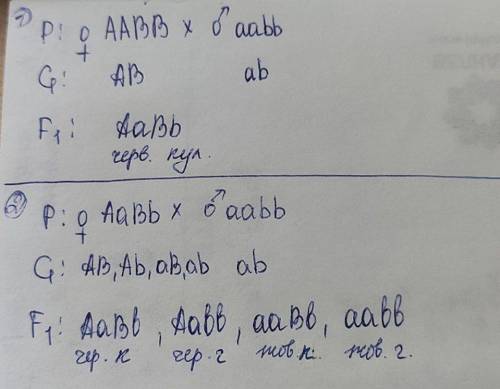 1) P: ♀ AABB × ♂ aabb
G: AB ab
F1: AaBb
черв. кул.
2) P: ♀ AaBb × ♂ aabb
G: AB, Ab, aB, ab ab
F1: AaBb, Aabb, aaBb, aabb
чер. к чер. г жов. к. жов. г.